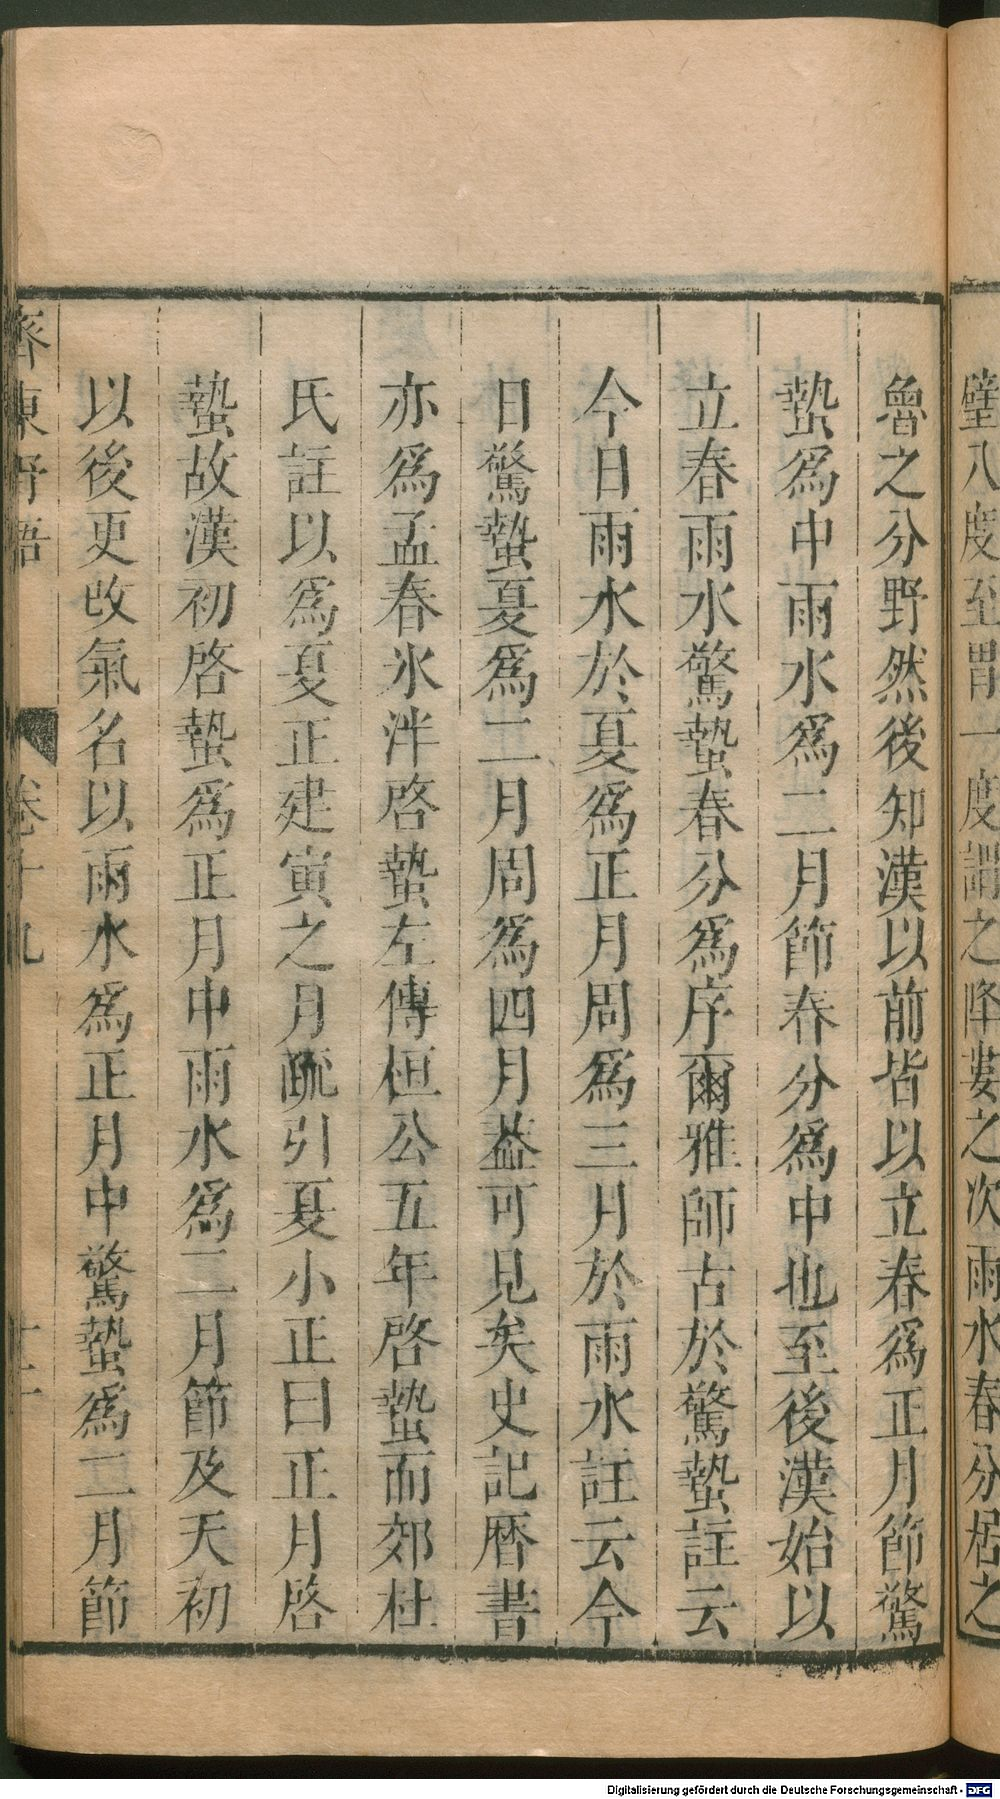 壁八度至胃一度謂之降婁之次雨水春分居之
魯之分野然後知漢以前皆以立春爲正月節驚
蟄爲中雨水爲二月節春分爲中也至後漢始以
立春雨水驚蟄春分爲序爾雅師古於驚蟄註云
今日雨水於夏爲正月周爲三月於雨水註云今
日驚蟄夏爲二月周爲四月葢可見矣史記曆書
亦爲孟春氷泮啓蟄左傳桓公五年啓蟄而郊杜
氏註以爲夏正建寅之月疏引夏小正曰正月啓
蟄故漢初啓蟄爲正月中雨水爲二月節及天初
以後更改氣名以雨水爲正月中驚蟄爲二月節
齊東野語 卷十九 十二
Digitalisierung gefördert durch die Deutsche Forschungsgemeinschaft - DFG